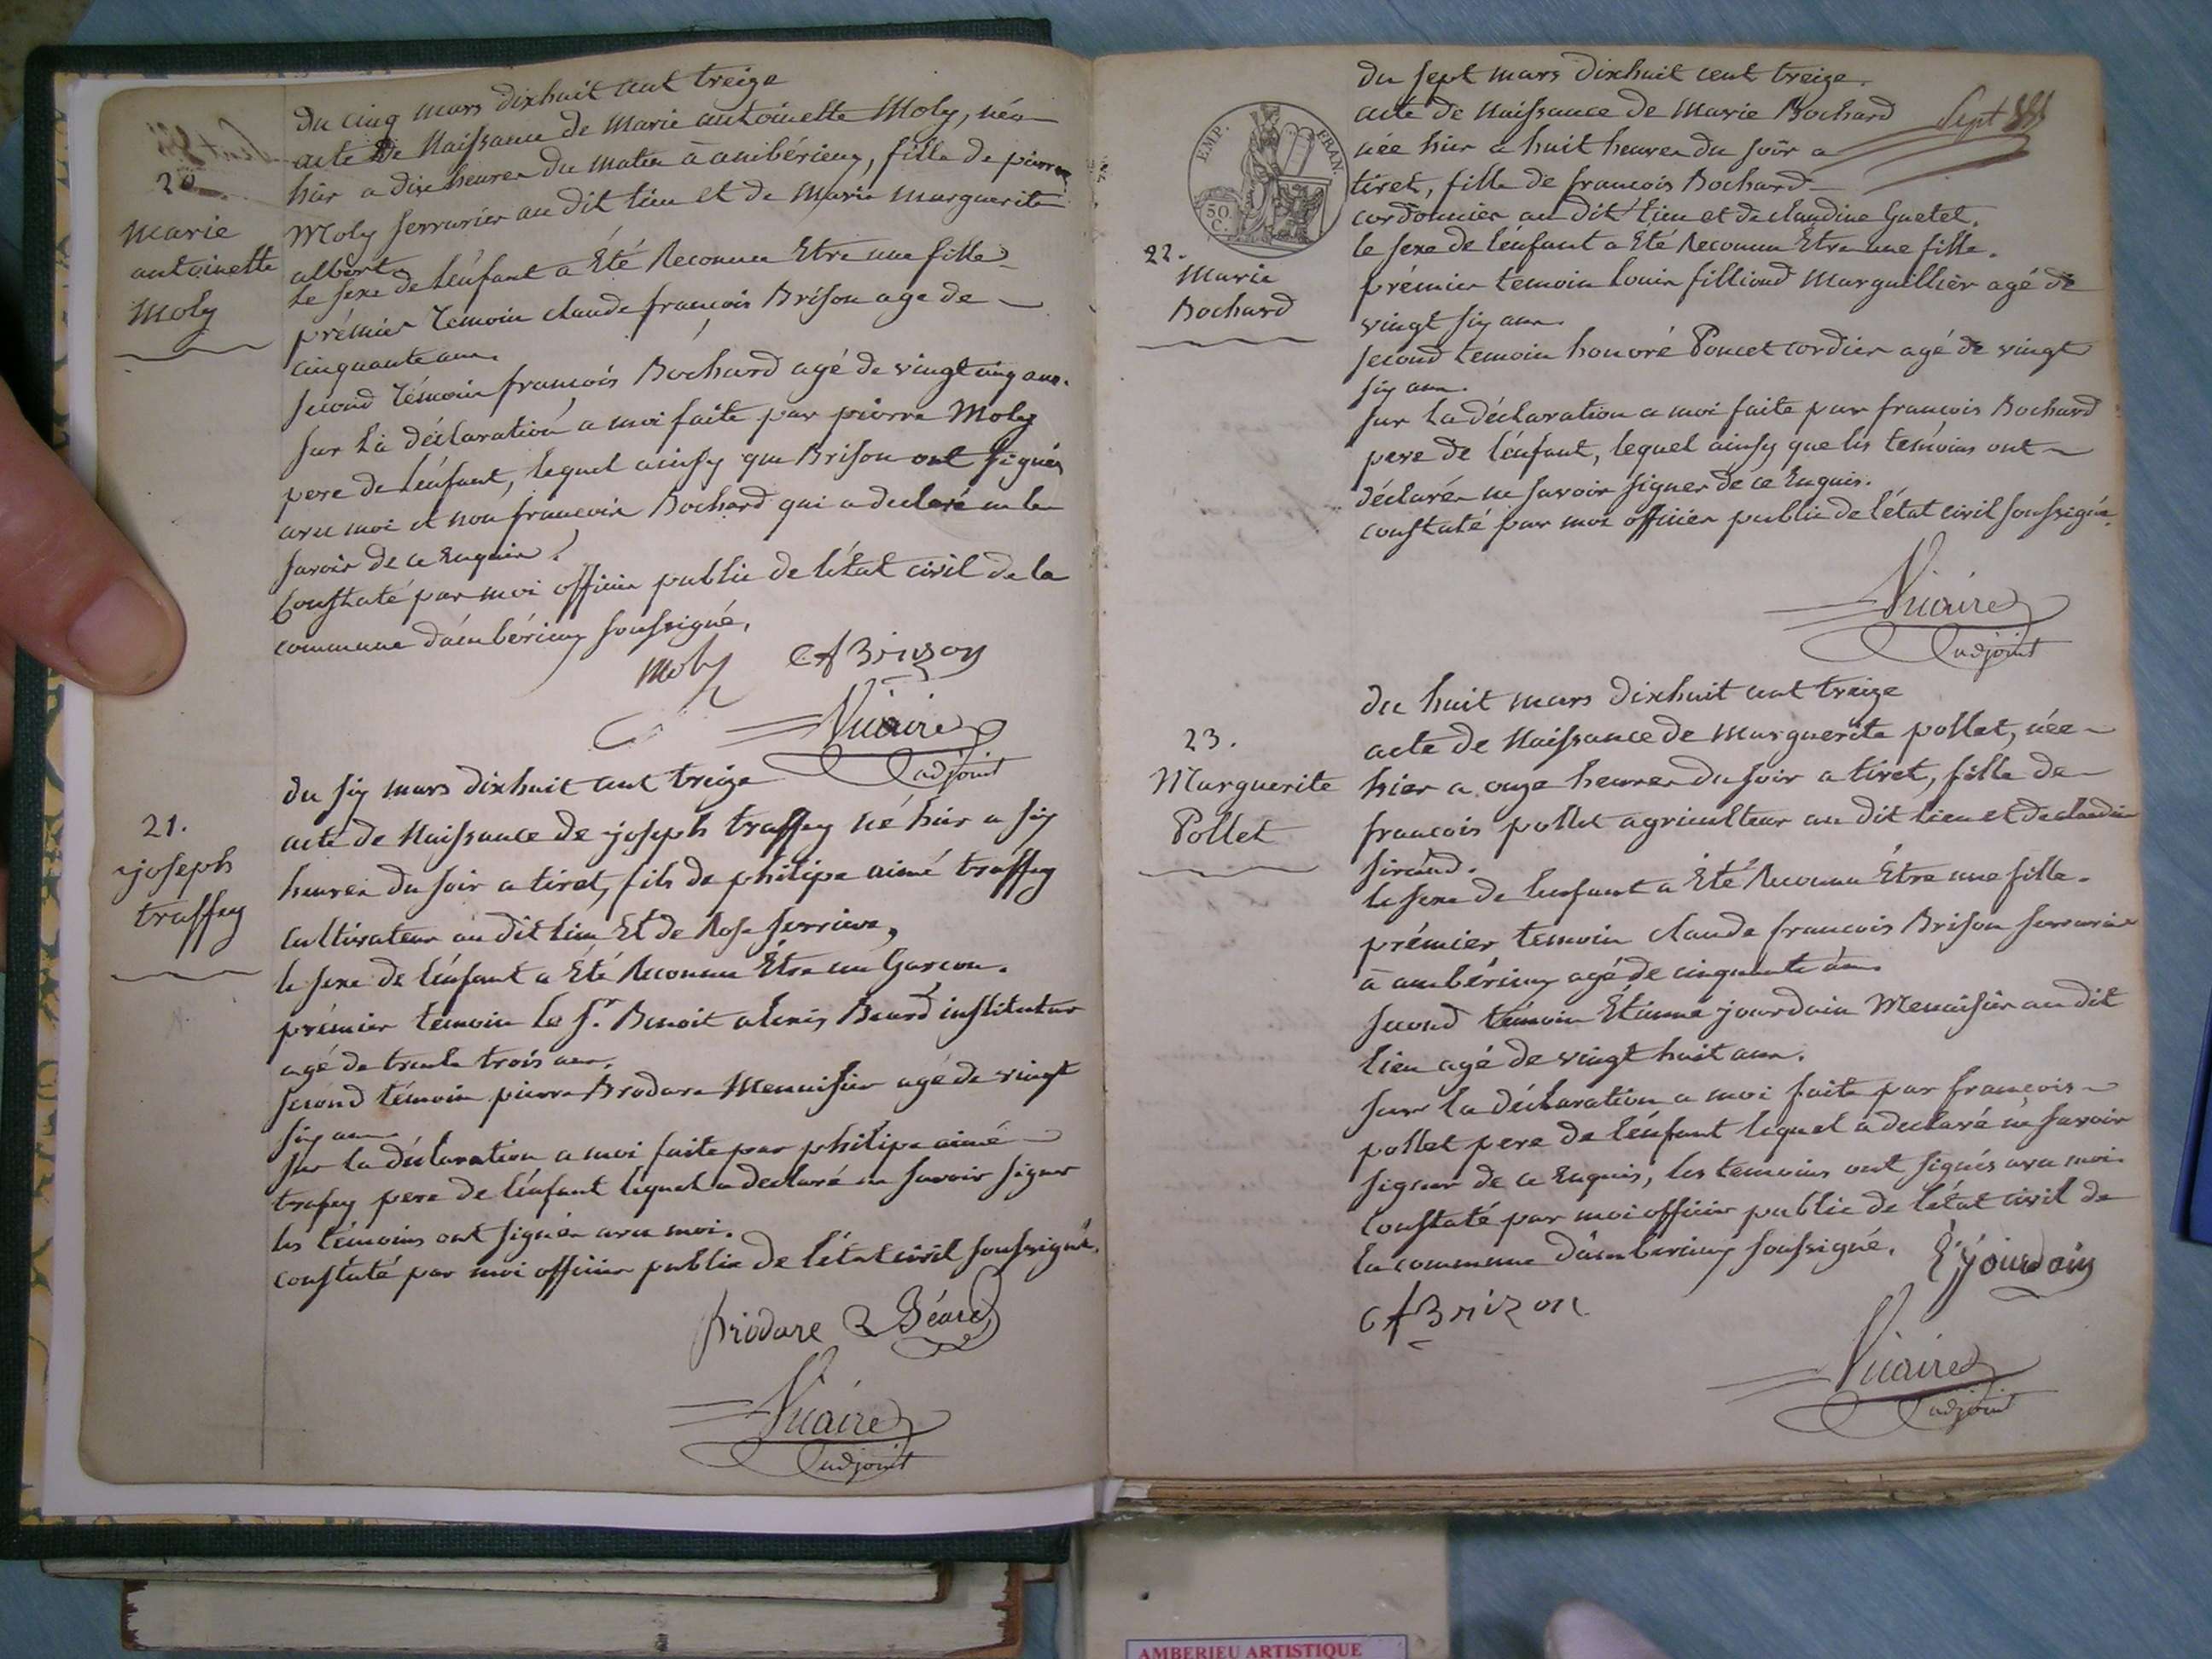 20
marie
antoinette
Moly
Du cinq mars dixhuit cent treize
acte de Naissance de Marie antoinette Moly, née
hier a dix heures du matin à ambérieux, fille de pierre
Moly serrurier au dit lieu et de Marie marguerite
albert
le sexe de l'énfant a Été Reconnu Etre une fille
prémier témoin claude françois Brison age de
cinquante ans.
second témoin françois Bochard agé de vingt cinq ans.
sur la déclaration a moi faite par pierre Moly
pere de l'énfant, lequel ainsy que Brison ont signés
avec moi et non françois Bochard qui a declaré ne le
savoir de ce Enquis
Constaté par moi officier public de l'état civil de la
commune d'ambérieux soussigné,
Moly CfBrison
Vicaire
adjoint
21.
joseph
traffey
du six mars dixhuit cent treize
acte de Naissance de joseph traffey né hier a six
heures du soir a tiret, fils de philipe aimé traffey
cultivateur au dit lieu Et de Rose
le sexe de l'énfant a Été Reconnu Être un Garcon.
prémier témoin le Sr. Benoit alexis Beard instituteur
agé de trente trois ans.
second témoin pierre Brodare Menuisier agé de vingt
six ans
sur la déclaration a moi faite par philipe aimé
trafey pere de l'énfant lequel a declaré ne savoir signer
les témoins ont signés avec moi.
constaté par moi officier public de l'état civil soussigné.
Brodare Béard
Vicaire
adjoint
EMP. FRAN.
50
C.
22.
Marie
Bochard
Sept
du sept mars dixhuit cent treize.
acte de naissance de Marie Bochard
née hier a huit heures du soir a
tiret, fille de françois Bochard
cordonnier au dit lieu et de claudine Guetet.
le sexe de l'énfant a Été Reconnu Être une fille.
prémier temoin Louis filliond Marguillier agé de
vingt six ans.
second temoin honoré Poncet cordier agé de vingt
six ans.
sur la déclaration a moi faite par françois Bochard
pere de l'énfant, lequel ainsy que les témoins ont
déclarés ne savoir signer de ce Enquis.
constaté par moi officier public de l'état civil soussigné.
Vicaire
adjoint
23.
Marguerite
Pollet
du huit mars dixhuit cent treize
acte de Naissance de marguerite pollet, née
hier a onze heures du soir a tiret, fille de
françois pollet agriculteur au dit lieu et de claudine
sirand.
le sexe de l'enfant a Été Reconnu Être une fille.
prémier temoin claude françois Brison serrurier
à ambérieux agé de cinquante ans
second témoin Étienne jourdain Menuisier au dit
lieu agé de vingt huit ans.
sur la déclaration a moi faite par françois
pollet pere de l'énfant lequel a declaré ne savoir
signer de ce Enquis, les temoins ont signés avec moi
Constaté par moi officier public de l'état civil de
la commune d'ambérieux soussigné.
E jourdain
CfBrizon
Vicaire
adjoint
AMBERIEU ARTISTIQUE